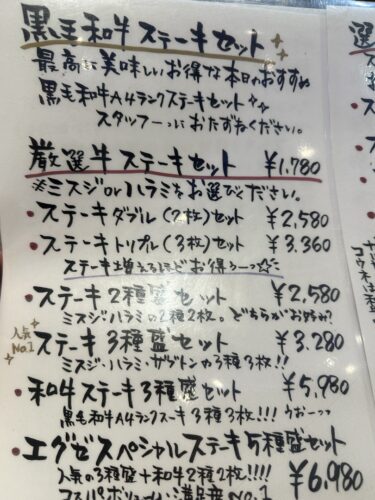 黒毛和牛ステーキセット
最高に美味しいお得な本日のおすすめ
黒毛和牛A4ランクステーキセット
スタッフーーにおたずねください。
厳選牛ステーキセット ¥1,780
※ミスジorハラミをお選びください。
・ステーキダブル(2枚)セット ¥2,580
・ステーキトリプル(3枚)セット ¥3,360
ステーキ増えるほどお得ぅーっ☆
・ステーキ2種盛セット ¥2,580
ミスジ・ハラミの2種2枚。どちらがお好み?
人気No.1
ステーキ3種盛セット ¥3,280
ミスジ・ハラミ・ザブトンの3種3枚!!
・和牛ステーキ3種盛セット ¥5,980
黒毛和牛A4ランクステーキ3種3枚!!!うおーっっ
・エグゼスペシャルステーキ5種盛セット
人気の3種盛+和牛2種2枚!!!! ¥6,980